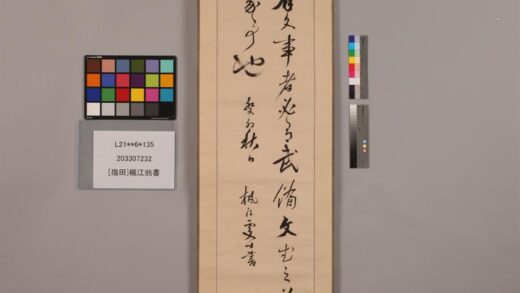 有文事者必有武備文武之
也 癸卯秋日 楓江書
L21**6*135
203307232
[嶺田]楓江翁書